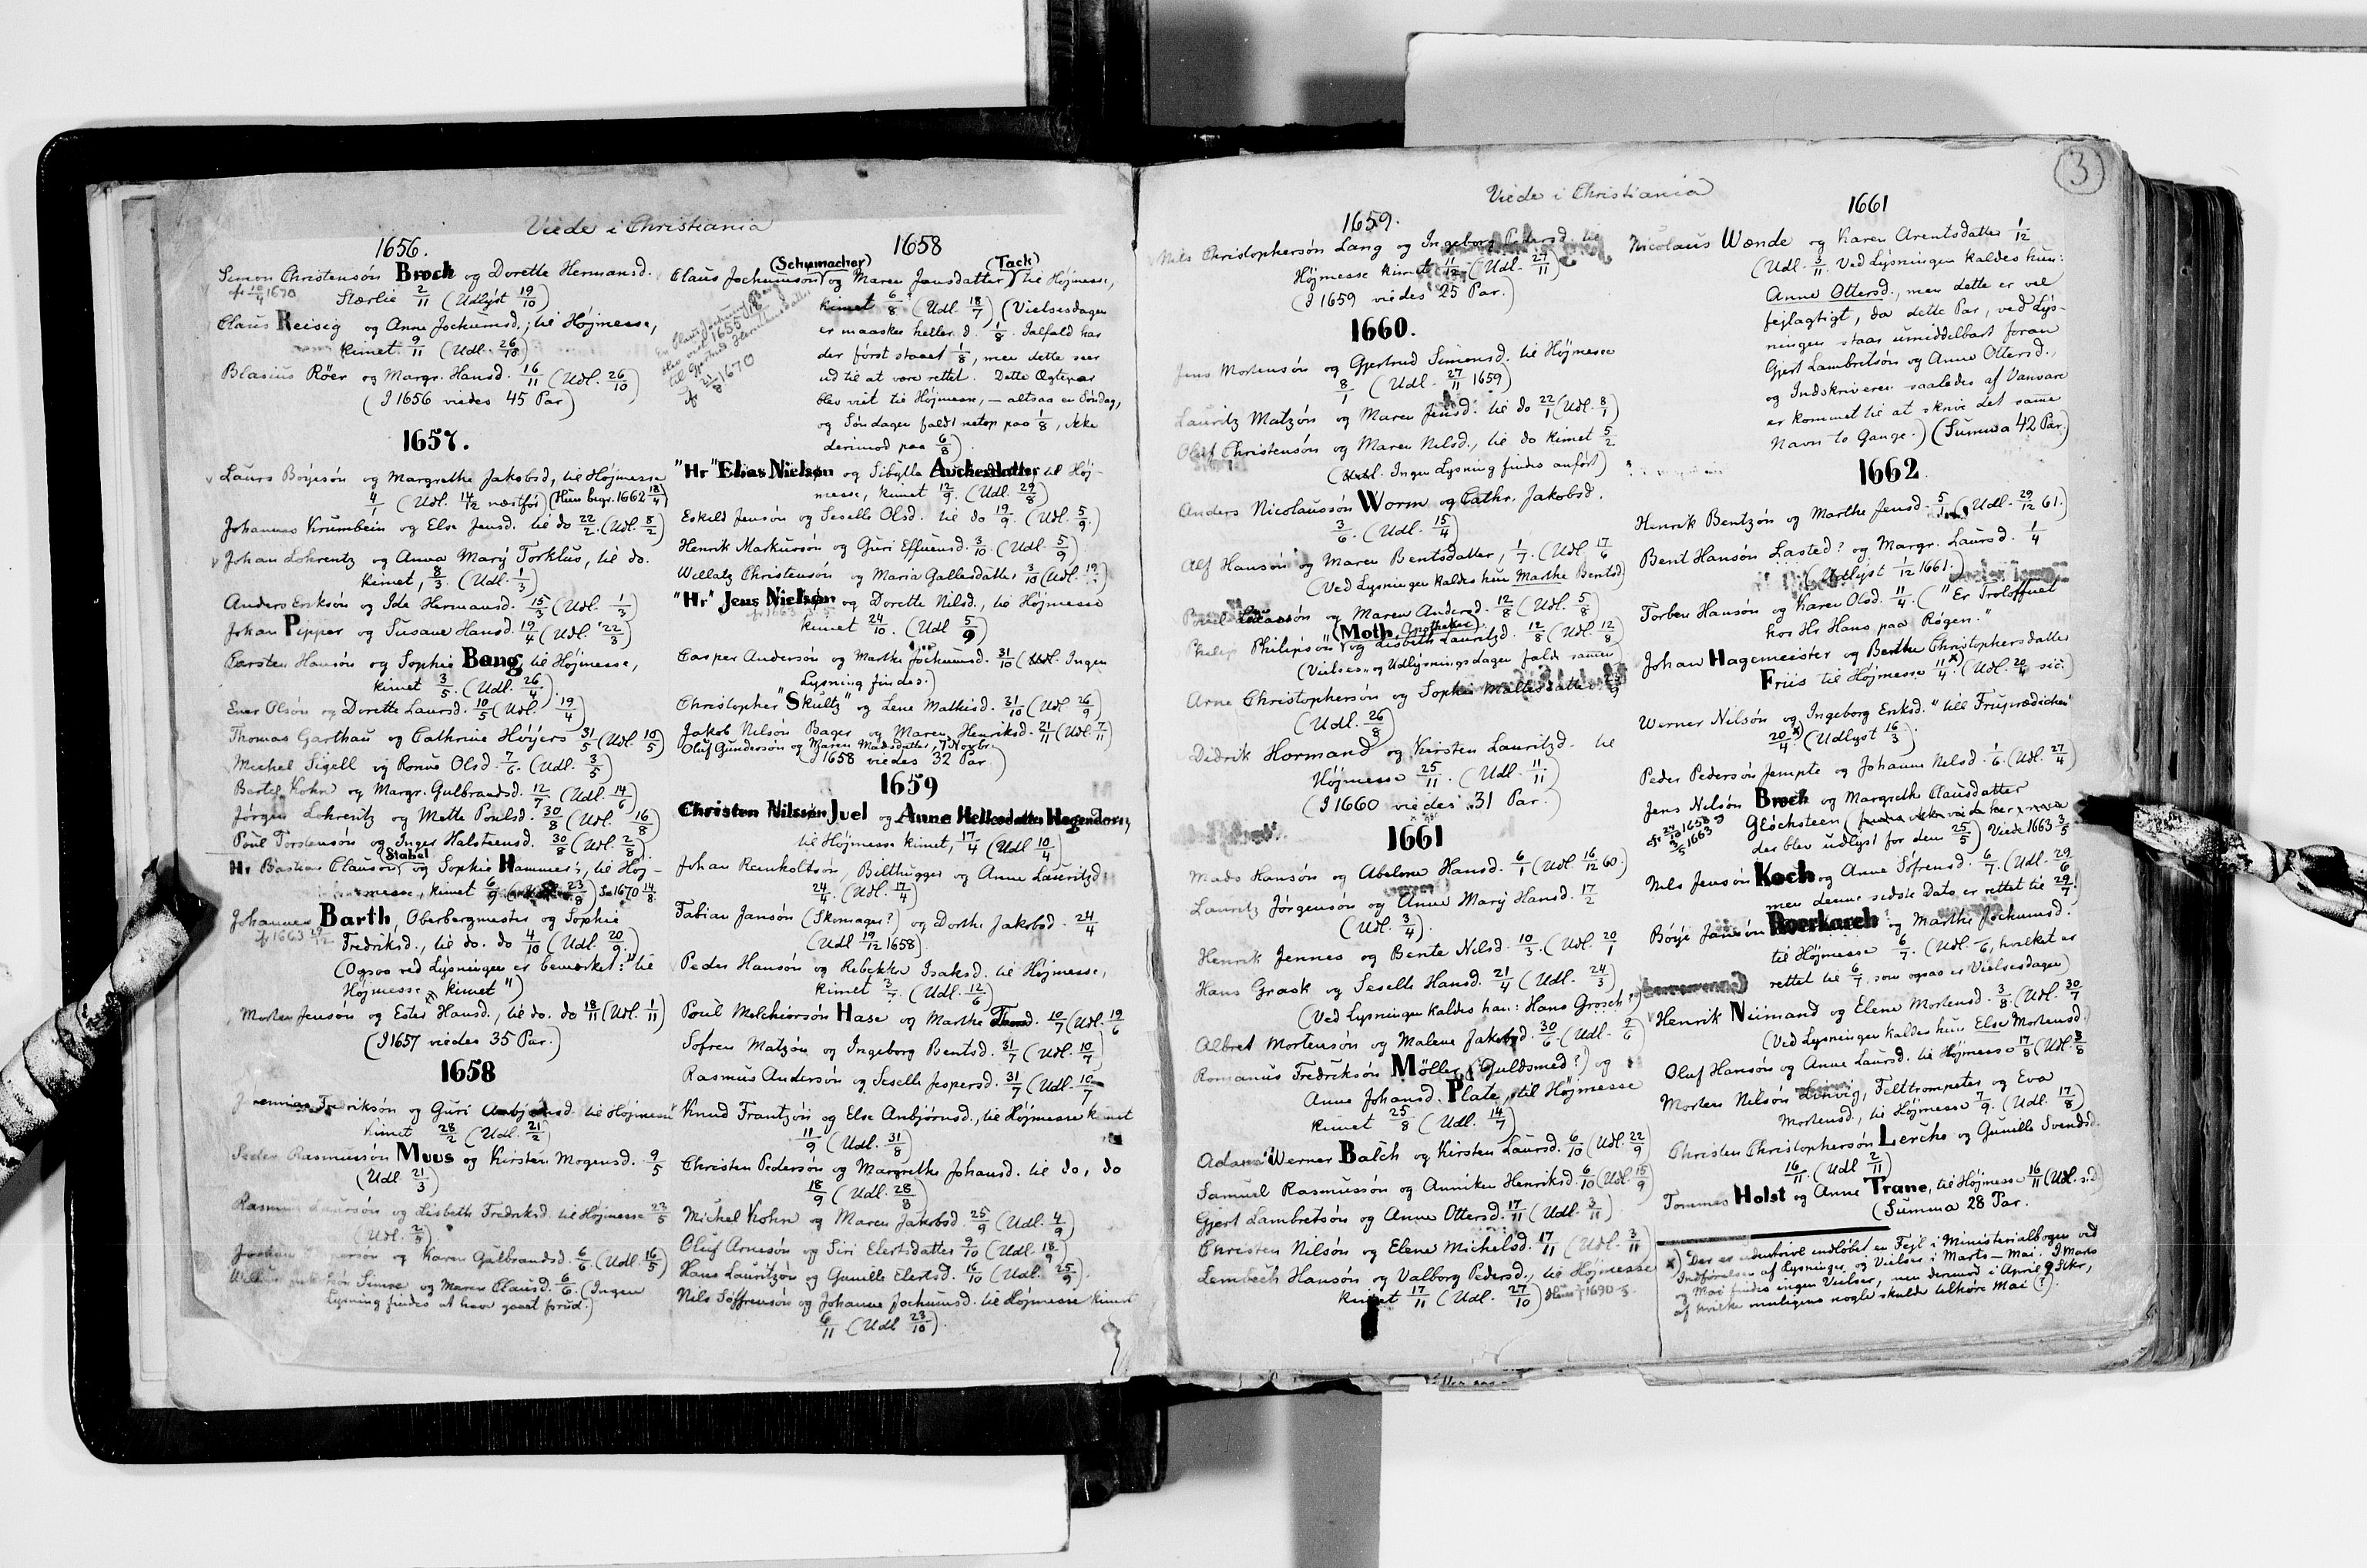 Viede i Christiania
1656.
Simon Christensön Broch og Dorette Hermansd.
cfr 10/4 1670 Slærlie 2/11 (Udlyst 19/10)
Claus Reisig og Anne Jochumsd., til Höjmesse,
kimet 9/11 (Udl. 26/10)
Blasius Röer og Margr. Hansd. 16/11 (Udl. 26/10)
(I 1656 viedes 45 Par)
1657.
Laurs Böyesön og Margrethe Jakobsd, til Höjmesse
4/1 (Udl. 14/12 næstför) (Hun begr. 1662 18/4)
Johannes Krumbein og Else Jensd. til do 22/2. (Udl. 8/2)
Johan Lohrentz og Anna Marÿ Torklus, til do.
kimet, 8/3. (Udl. 1/3)
Anders Eriksön og Ide Hermansd. 15/3 (Udl. 1/3)
Johan Pipper og Susane Hansd. 19/4 (Udl. 22/3)
Carsten Hansön og Sophie Bang, til Höjmesse,
kimet 3/5. (Udl. 26/4).
Ener Olsön og Dorette Laursd. 10/5 (Udl. 19/4)
Thomas Garthau og Cathrine Höÿers 31/5 (Udl. 10/5)
Michel Sigell og Ronne Olsd. 7/6. (Udl. 3/5)
Bertel Kohn og Margr. Gulbrandsd. 12/7. (Udl. 14/6)
Jörgen Lohrentz og Mette Poulsd. 30/8 (Udl. 16/8)
Poul Torstensön og Inger Halstensd. 30/8 (Udl. 2/8).
Hr Bastian Clausön (Stabel) og Sophie Hammer's, til Höj-
messe, kimet 6/9 (Udl. 23/8) Se 1670 14/8.
Johannes Barth, Oberbergmester og Sophie
cfr 1663 29/12 Fredriksd., til do. do 4/10 (Udl. 20/9.)
(Ogsaa ved Lysningen er bemærket: "til
Höjmesse kimet")
Morten Jensön og Ester Hansd., til do. do 18/11 (Udl. 1/11)
(I 1657 viedes 35 Par.)
1658
Fredriksön og Guri Anbjörnsd. til Höjmesse
kimet 28/2 (Udl. 21/2)
Peder Rasmussön Muus og Kirsten Mogensd. 9/5
(Udl. 21/3)
Rasmus Laursön og Lisbeth Fredriksd. til Höjmesse 23/5
(Udl. 2/5)
og Karen Gulbrandsd. 6/6 (Udl. 16/5)
Simse og Maren Clausd. 6/6. (Ingen
Lysning findes at have gaaet forud.)
1658
Claus Jochumsön (Schumacher) og Maren Jansdatter (Tack) til Höjmesse,
kimet 6/8 (Udl. 18/7) (Vielsesdagen
er maaskee heller d. 1/8. Ialfald har
der först staaet 1/8, men dette seer
ud til at være rettet. Dette Ægtepar
blev viet til Höjmesse, — altsaa en Söndag,
og Söndagen faldt netop paa 1/8, ikke
derimod paa 6/8)
En Claus Jochumsd.
blev viet 1655
til Gjertrud
21/8 1670
"Hr" Elias Nielsøn og Sibylle Auchesdatter til Höj-
messe, kimet 12/9. (Udl. 29/8)
Eskild Jensön og Seselle Olsd. til do 19/9. (Udl. 5/9.)
Henrik Markussön og Guri Effuensd. 3/10. (Udl. 5/9)
Willatz Christensön og Maria Gallesdatter 3/10 (Udl. 19/
"Hr" Jens Nielsøn og Dorette Nilsd., til Höjmesse
kimet 24/10. (Udl 5/9)
Casper Andersön og Marthe Jochumsd. 31/10 (Udl. Ingen
Lysning findes.)
Christopher "Skultz" og Lene Mathisd. 31/10 (Udl. 26/9)
Jakob Nilsön Bager og Maren Henriksd. 21/11 (Udl. 7/11)
Oluf Gundersön og Maren Madsdatter, 7 Novbr.
(I 1658 viedes 32 Par.)
1659
Christen Nilssøn Juel og Anne Hellesdatter Hagendorn,
til Höjmesse kimet, 17/4 (Udl 10/4)
Johan Reinholtsön, Bilthugger og Anne Lauritzd.
24/4. (Udl. 17/4)
Fabian Jansön (Skomager?) og Dorthe Jakobsd. 24/4
(Udl 19/12 1658).
Peder Hansön og Rebekka Isaksd. til Höjmesse,
kimet 3/7. (Udl. 12/6)
Poul Melchiorsön Hase og Marthe 10/7 (Udl. 19/6
Sofren Matzön og Ingeborg Bentsd. 31/7 (Udl. 10/7)
Rasmus Andersön og Seselle Jespersd. 31/7 (Udl. 10/7
Knud Frantzön og Else Anbjörnsd., til Höjmesse kimet
11/9 (Udl. 31/8)
Christen Pedersön og Margrethe Johansd. til do, do
18/9 (Udl. 28/8)
Michel Kohn og Maren Jakobsd. 25/9 (Udl. 4/9)
Oluf Arnesön og Siri Elertsdatter 9/10 (Udl. 18/9)
Hans Lauritzön og Gunille Elertsd. 16/10 (Udl. 25/9).
Nils Söffrensön og Johanne Jochumsd. til Höjmesse kimet
6/11 (Udl 23/10).
3
Viede i Christiania
1659.
Nils Christophersön Lang og Ingeborg Petersd. til
Höjmesse kimet 11/12 (Udl. 27/11)
(I 1659 viedes 25 Par.)
1660.
Jens Mortensön og Gjertrud Simensd. til Höjmesse
8/1 (Udl. 27/11 1659)
Lauritz Matzön og Maren Jensd. til do 22/1 (Udl. 8/1)
Oluf Christensön og Maren Nilsd., til do kimet 5/2
(Udl. Ingen Lysning findes anfört)
Anders Nicolaussön Worm og Cathr. Jakobsd.
3/6. (Udl. 15/4)
Alf Hansön og Maren Bentsdatter, 1/7. (Udl. 17/6
(Ved Lysningen kaldes hun Marthe Bentsd)
og Maren Andersd. 12/8 (Udl. 5/8)
Philip Philipsön" (Moth, Apotheker) og Lisbeth Lauritzd. 12/8 (Udl. 12/8)
(Vielses- og Udlysningsdagen faldt sammen)
Arne Christophersön og Sophie Maltesdatter
(Udl. 26/8)
Didrik Hormand og Kirsten Lauritzd. til
Höjmesse 25/11. (Udl. 11/11)
(I 1660 viedes 31 Par.)
1661
Mads Hansön og Abelone Hansd. 6/1 (Udl 16/12 60.)
Lauritz Jörgensön og Anne Marÿ Hansd. 17/2
(Udl. 3/4).
Henrik Jennes og Bente Nilsd. 10/3. (Udl. 20/1
Hans Grask og Seselle Hansd. 21/4 (Udl. 24/3)
(Ved Lysningen kaldes han: Hans Grosch?)
Albret Mortensön og Malene Jakobsd. 30/6. (Udl. 9/6)
Romanus Fredriksön Möller (Guldsmed?) og
Anne Johansd. Plate, til Höjmesse
kimet 25/8 (Udl. 14/7)
Adam Werner Balch og Kirsten Laursd. 6/10 (Udl. 22/9)
Samuel Rasmussön og Anniken Henriksd. 6/10 (Udl. 15/9)
Gjert Lambretsön og Anne Ottersd. 17/11 (Udl. 3/11)
Christen Nilsön og Elene Michelsd. 17/11 (Udl. 3/11)
Lembech Hansön og Valborg Pedersd., til Höjmesse
kimet 17/11 (Udl. 27/10)
1661
Nicolaus Wænde og Karen Arentsdatter 1/12
(Udl. 3/11. Ved Lysningen kaldes hun:
Anne Ottersd., men dette er vel
fejlagtigt, da dette Par, ved Lys-
ningen staar umiddelbart foran
Gjert Lambretsön og Anne Ottersd.,
og Indskriveren saaledes af Vanvare
er kommet til at skrive det samme
Navn to Gange.) (Summa 42 Par.)
1662.
Henrik Bentzön og Marthe Jensd. 5/1 (Udl. 29/12 61.)
Bent Hansön Lasted? og Margr. Laursd. 1/4
(Udlyst 1/12 1661.)
Torben Hansön og Karen Olsd. 11/4. ("Er Troloffuet
hos Hr Hans paa Røgen."
Johan Hagemeister og Benthe Christophersdatter
Friis til Höjmesse 11/4 x). (Udl. 20/4 sic.)
Werner Nilsön og Ingeborg Eriksd. "till Fruprædichen"
20/4 x). (Udlyst 16/3).
Peder Pedersön Jempte og Johanne Nilsd. 1/6. (Udl. 27/4)
Jens Nilsön Broch og Margrethe Clausdatter
Glöchsteen
der blev udlyst for dem 25/5) Viede 1663 3/5
Nils Jensön Koch og Anne Söfrensd. 6/7. (Udl. 29/6
men denne sidste Dato er rettet til 29/7!
Böÿe Jansön og Marthe Jochumsd.
til Höjmesse 6/7. (Udl. /6, hvilket er
rettet til 6/7, som ogsaa er Vielsesdagen)
Henrik Niimand og Elene Mortensd. 3/8. (Udl. 30/7
(Ved Lysningen kaldes hun Else Mortensd.)
Oluf Hansön og Anne Laursd. til Höjmesse 17/8 (Udl. 3/8
Morten Nilsön, Felttrompeter og Eva
Mortensd., til Höjmesse 7/9. (Udl. 17/8)
Christen Christophersön Lerche og Gunille Svendsd.
16/11. (Udl 2/11)
Tommes Holst og Anne Trane, til Höjmesse 16/11 (Udl. s.d.)
(Summa 28 Par.
x) Der er udentvivl indløbet en Fejl i Ministerialbogen ved
Indførelsen af Lysninger og Vielser i Marts—Mai. I Marts
og Mai findes ingen Vielser, men derimod i April 9 Stkr,
af hvilke muligens nogle skulde tilhöre Mai (?).